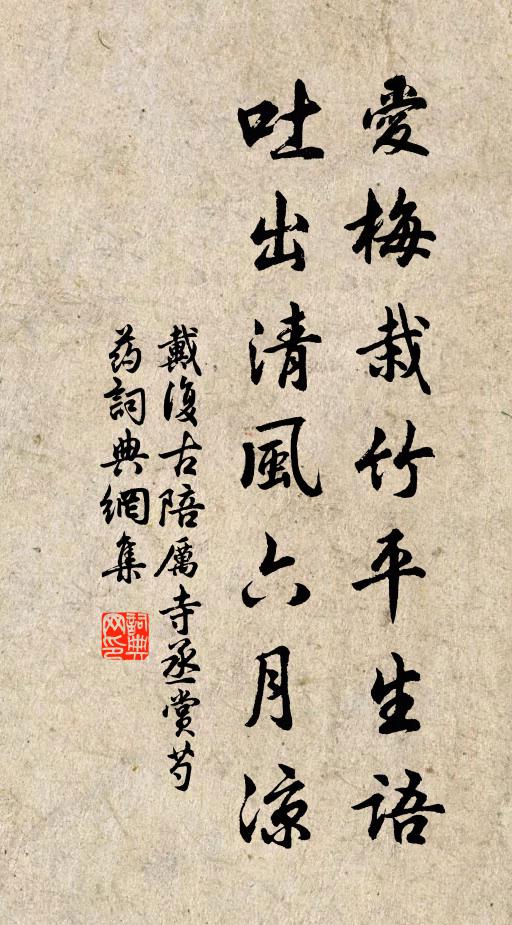 愛梅栽竹平生語
吐出清風六月涼
戴復古陪厲寺丞賞芍
药詞典網集
詞典
网印